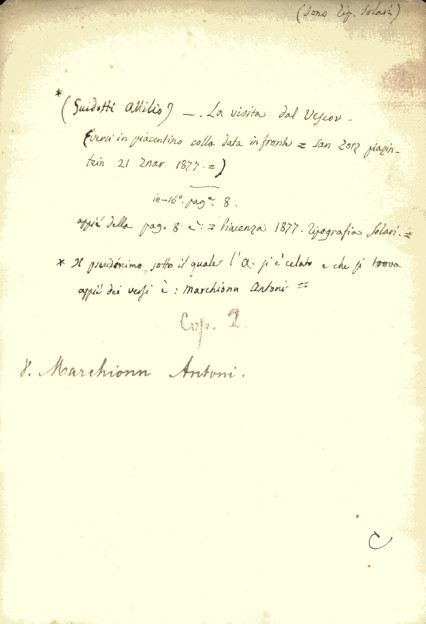 (Dono Tip. Solari)
* (Guidotti Attilio) — . La visita dal Vescov -
(versi in piacentino colla data in fronte = San Zorz piazin-
tein 21 Znar 1877. =)
in-16°. pag.e 8.
appiè della pag. 8 è: = Piacenza 1877. Tipografia Solari. =
* Il pseudónimo, sotto il quale l'A. si è celato e che si trova
appiè dei versi è: Marchionn Antoni =
Cop. 2
V. Marchionn Antoni.
C